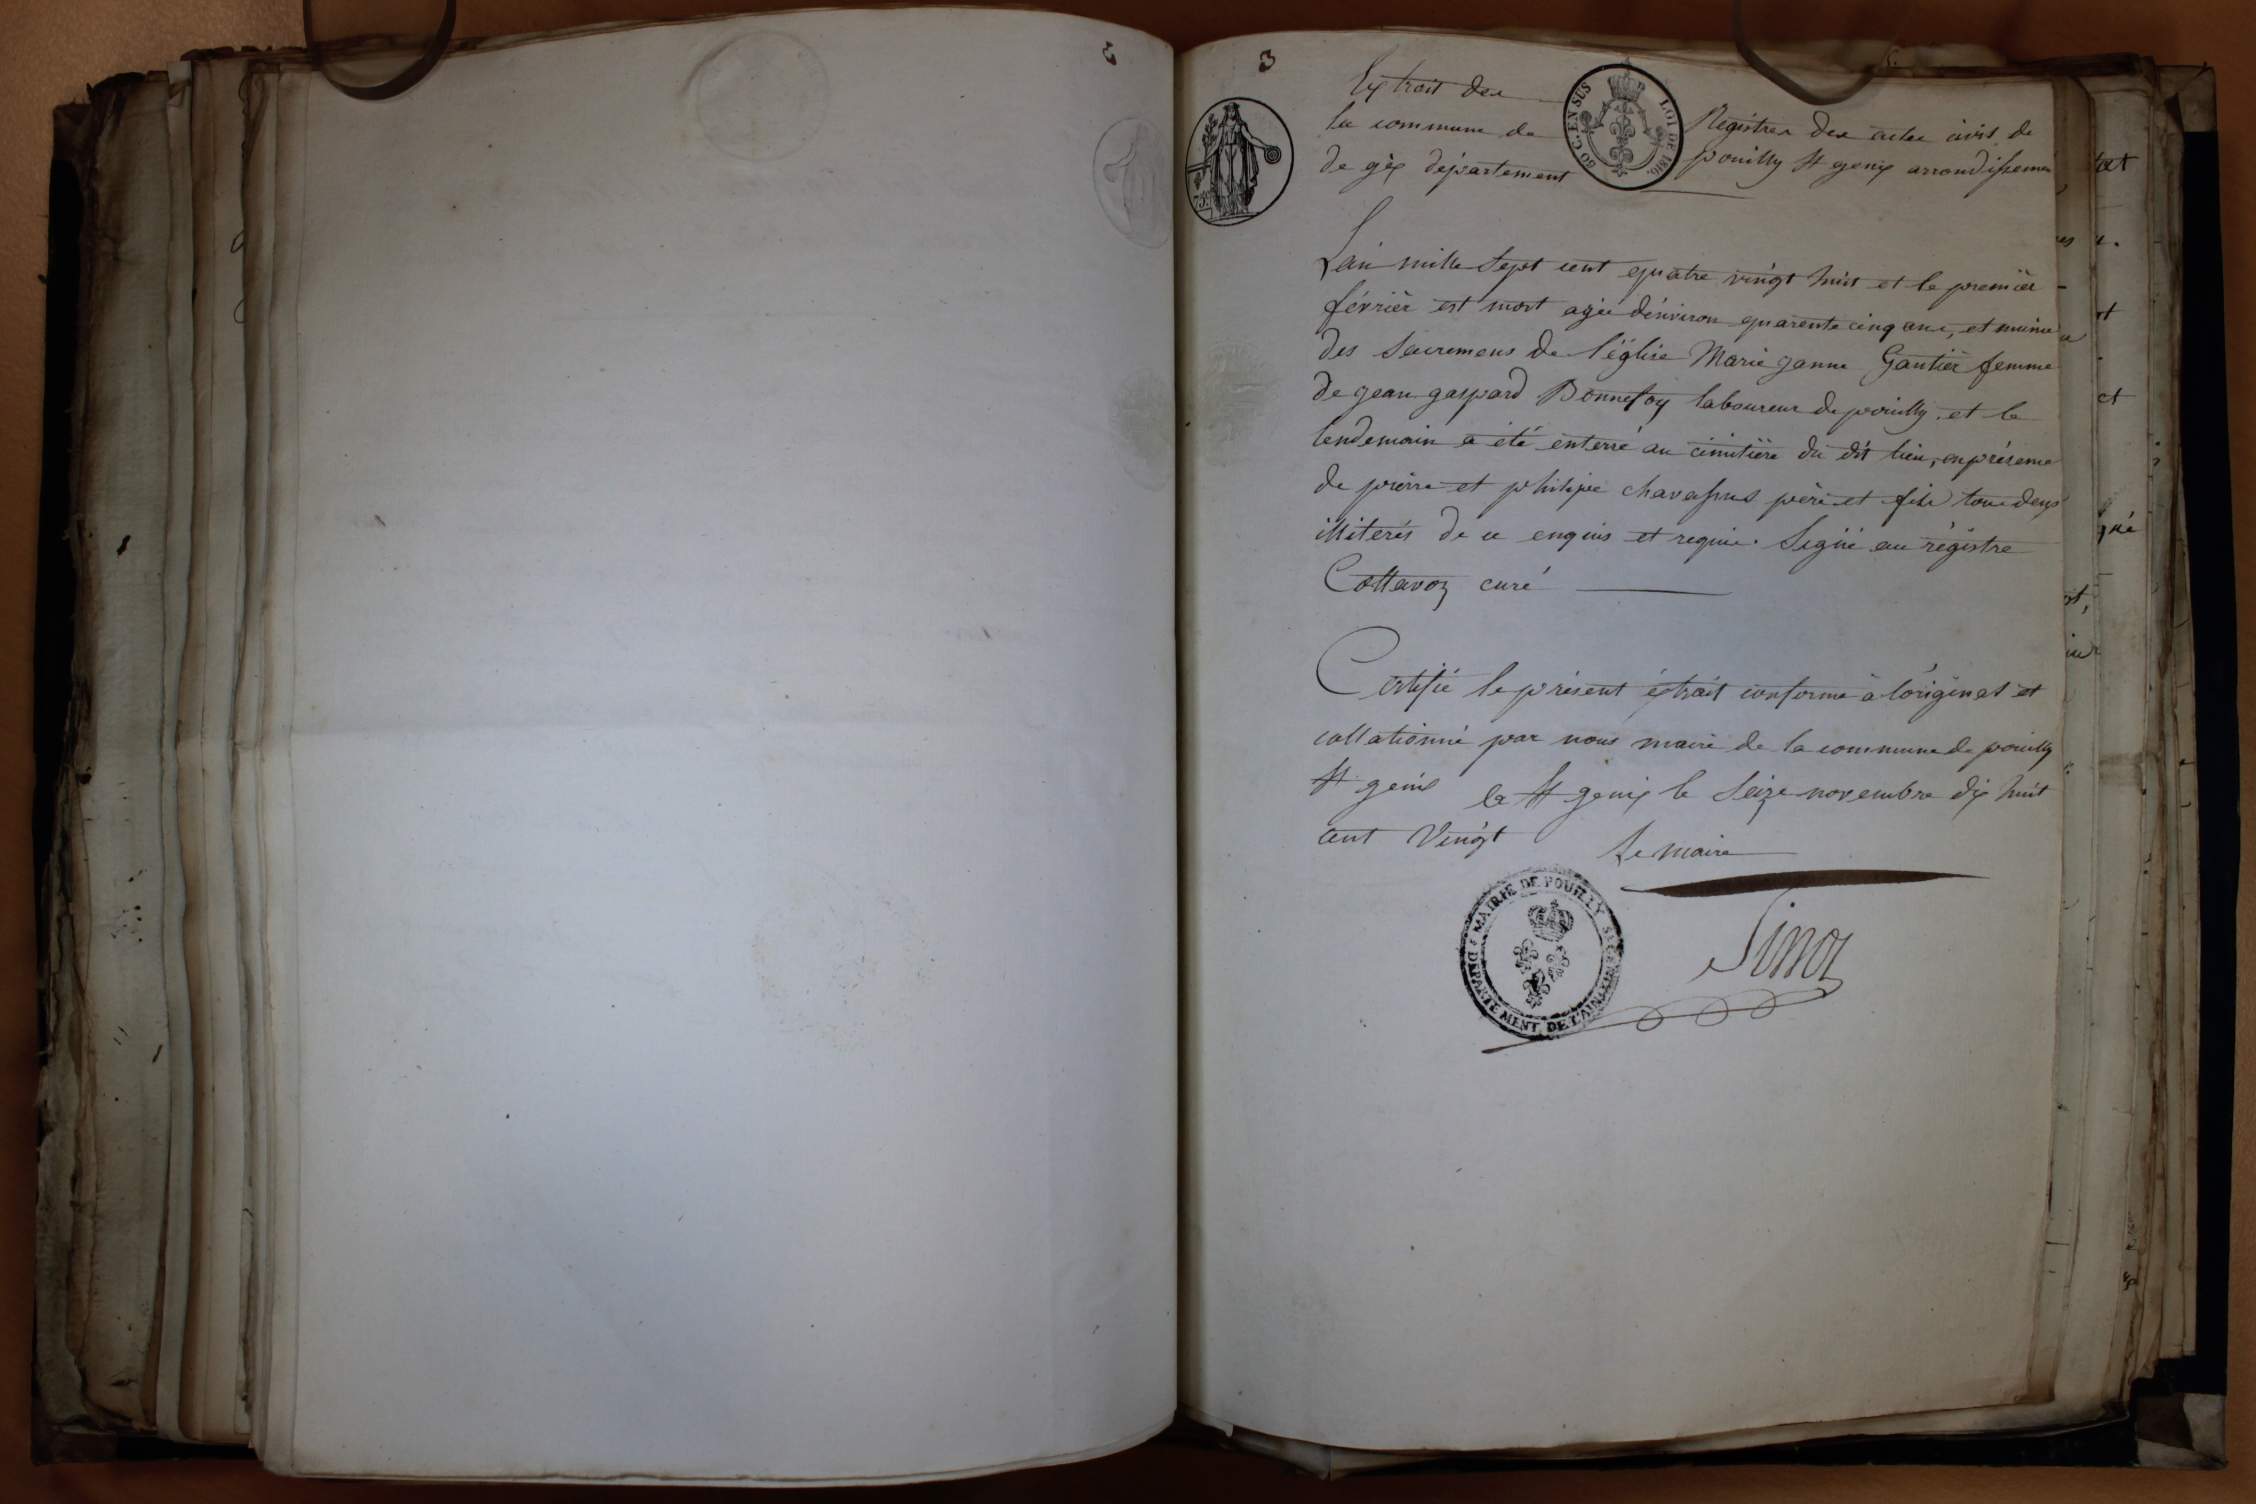 3
Extrait des Registres des actes civis de
la commune de pouilly St genix arrondissemen
de gex département
60 C. EN SUS
LOI DE 1816.
75
L'an mille Sept cent quatre vingt huit et le premier
février est mort agée d'environ quarente cinq ans, et munie
des sacremens de l'église Marie janne Gautier femme
de jean gaspard Bonnefoy laboureur de pouilly. et le
lendemain a été enterré au cimitière du dit lieu, en présence
de pierre et philipe chavassus père et fils tous deux
illiterés de ce enquis et requis. Signé au régistre
Cottavoz curé
Certifié le présent éxtrait conforme à l'original et
collationné par nous maire de la commune de pouilly
St genix le St genix le Seize novembre dix huit
cent Vingt
Le maire
MAIRIE DE POUILLY St GENIX
DEPARTEMENT DE L'AIN